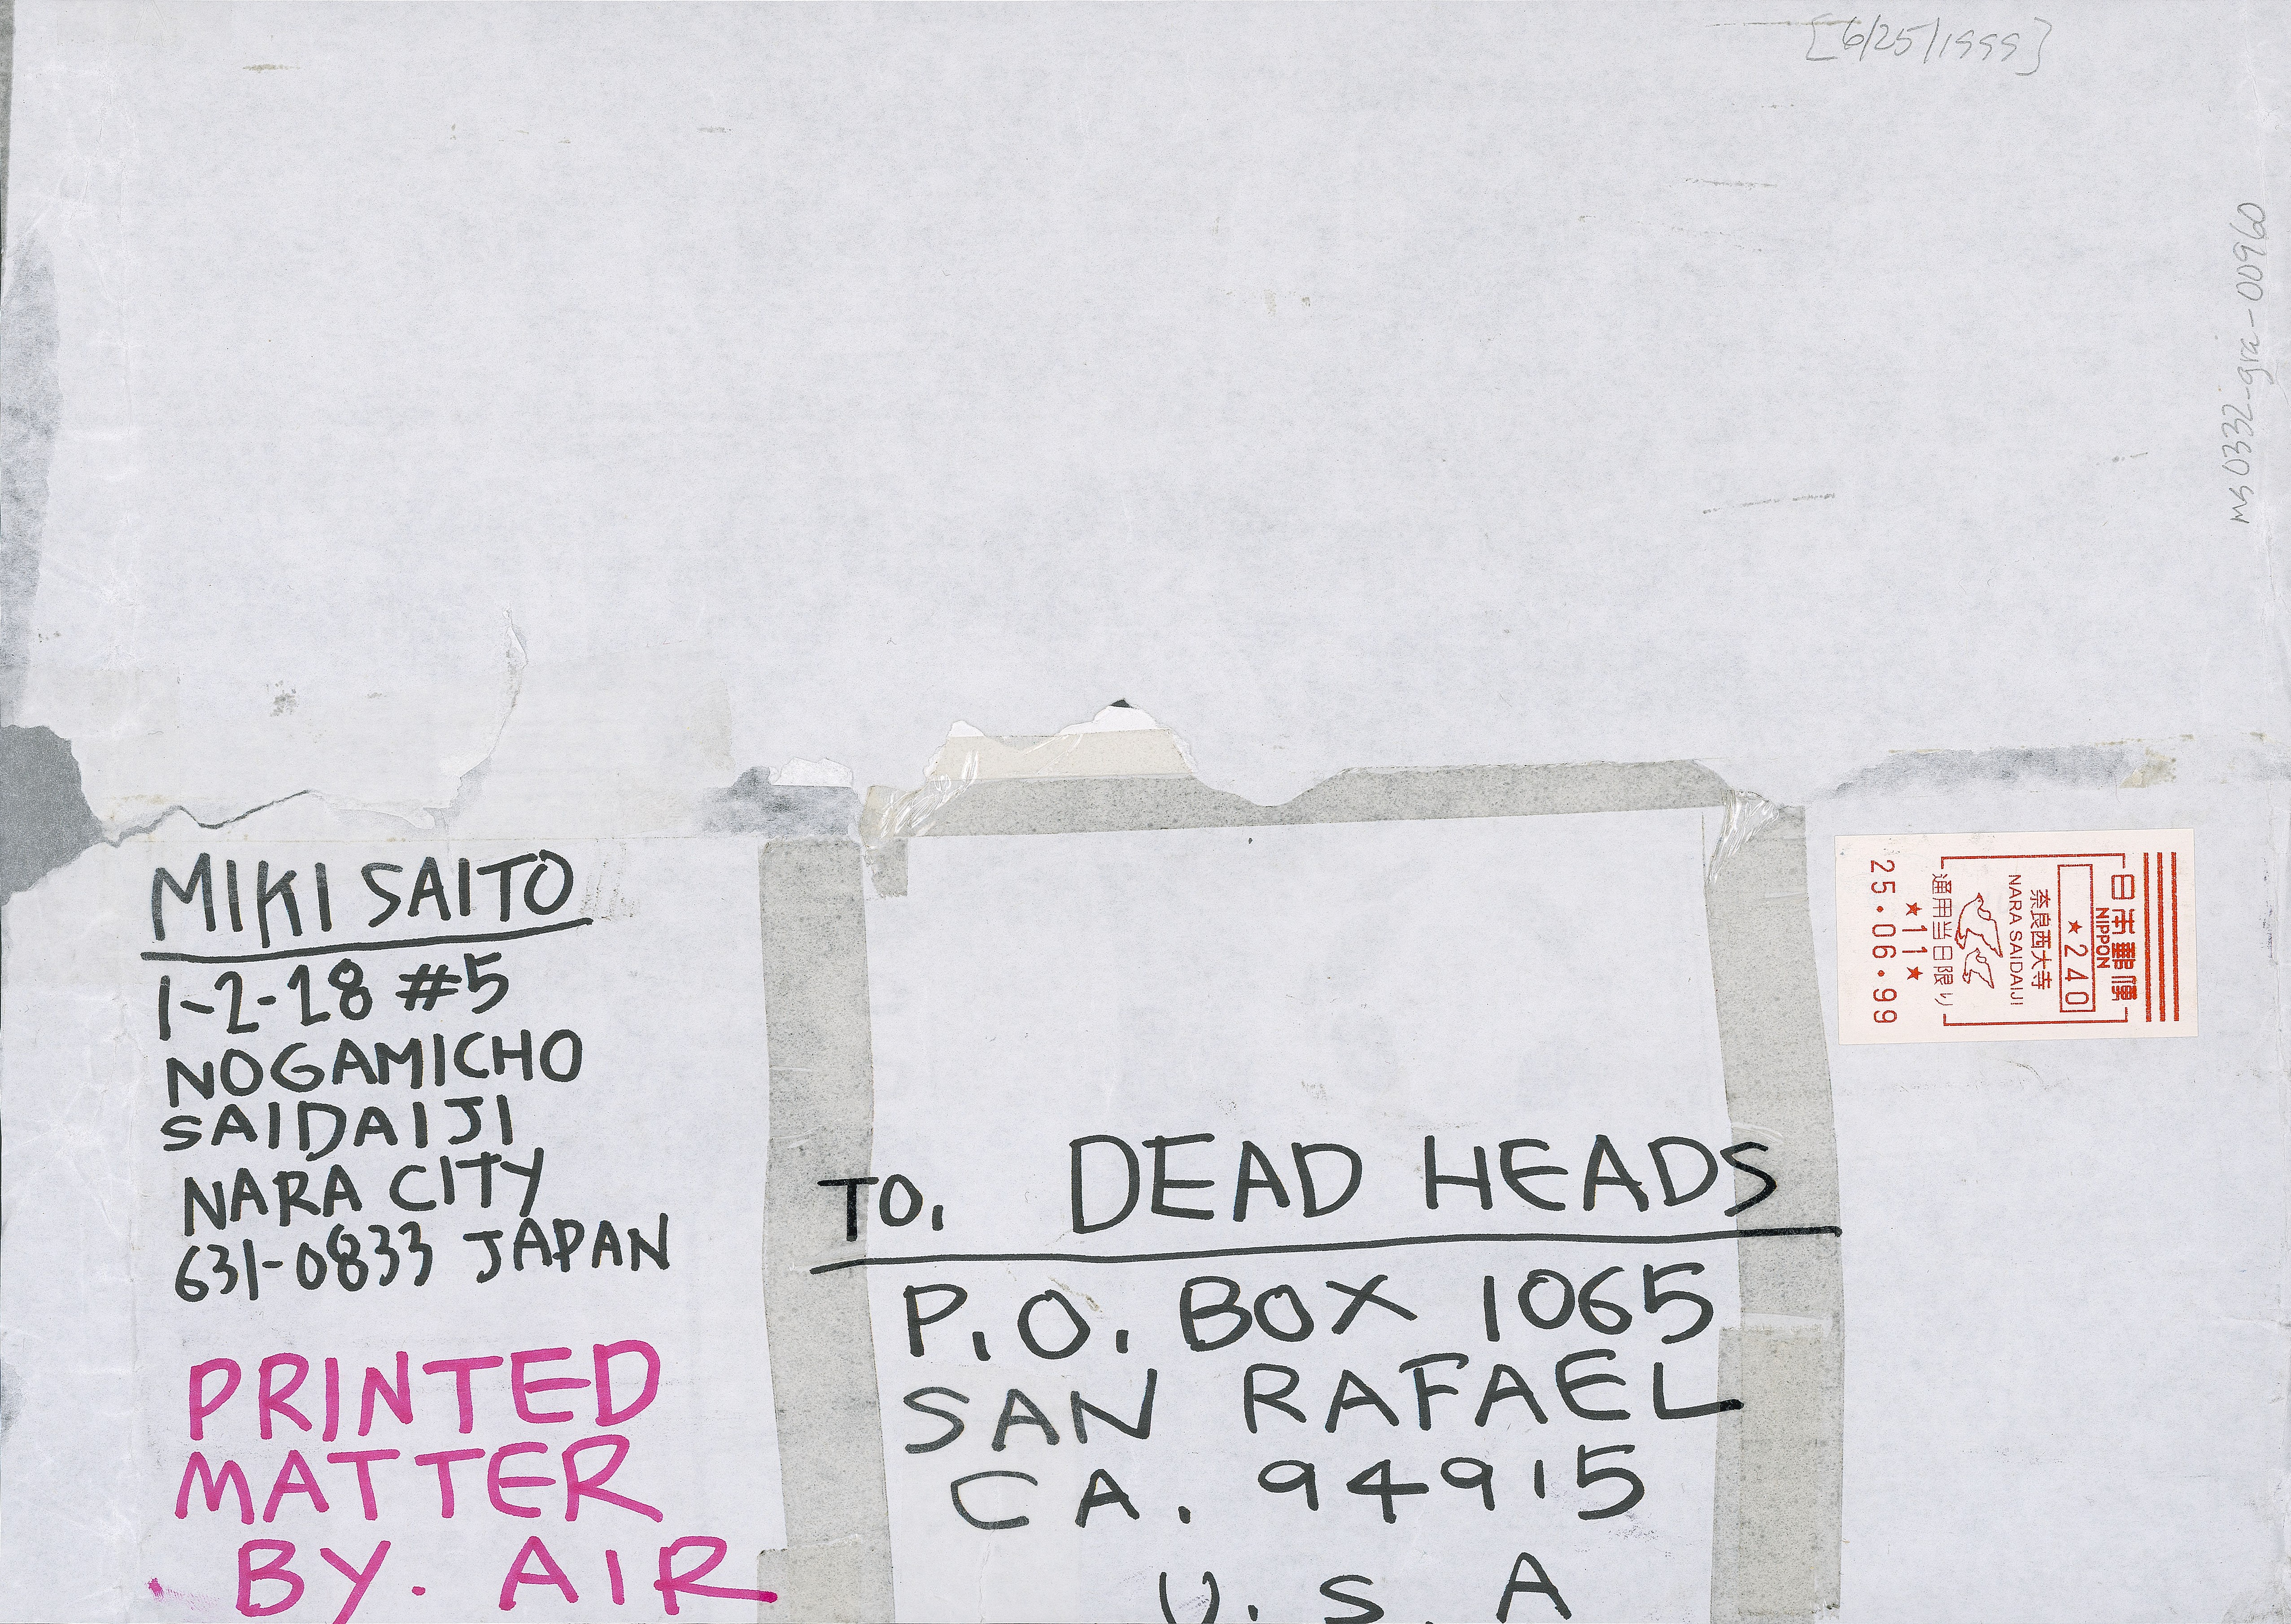 [6/25/1999]
ms0332-gra-00960
MIKI SAITO
1-2-28 #5
NOGAMICHO
SAIDAIJI
NARA CITY
631-0833 JAPAN
PRINTED
MATTER
BY. AIR
TO. DEAD HEADS
P.O. BOX 1065
SAN RAFAEL
CA. 94915
U.S.A
日本郵便
NIPPON
★240
奈良西大寺
NARA SAIDAIJI
通用当日限り
★11★
25.06.99